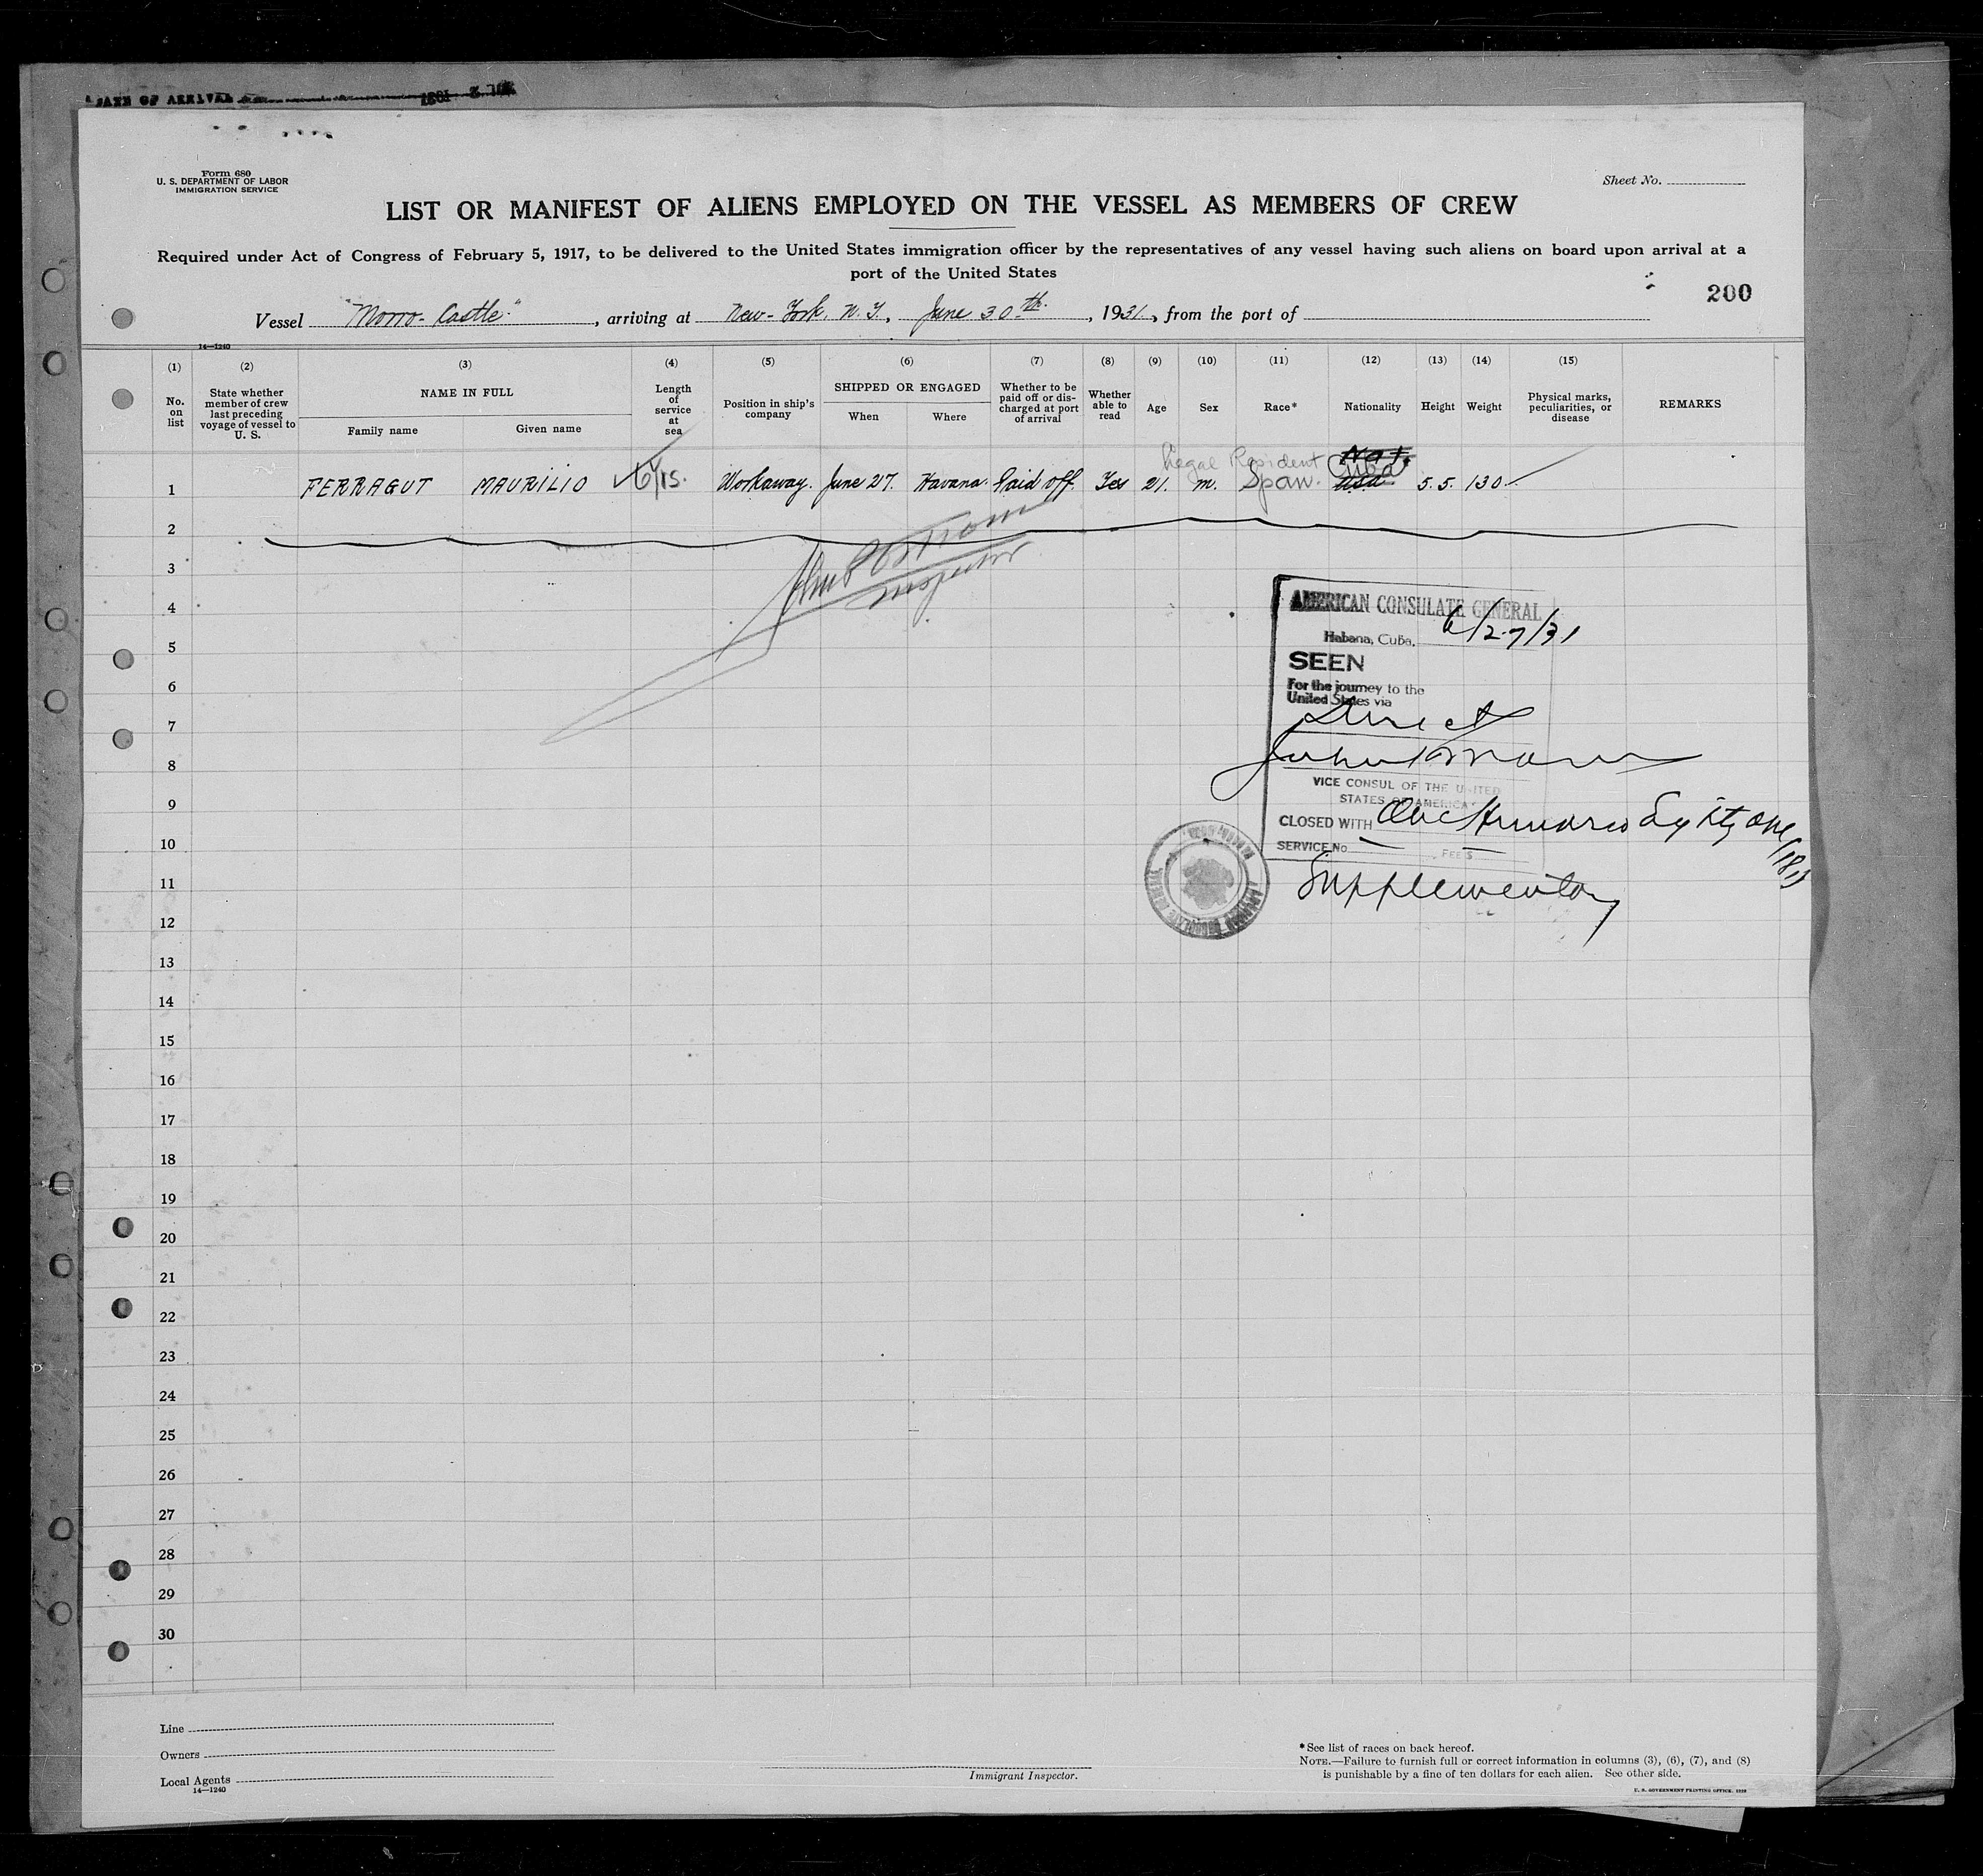 DATE OF ARRIVAL
Form 680
U. S. DEPARTMENT OF LABOR
IMMIGRATION SERVICE
Sheet No.
LIST OR MANIFEST OF ALIENS EMPLOYED ON THE VESSEL AS MEMBERS OF CREW
Required under Act of Congress of February 5, 1917, to be delivered to the United States immigration officer by the representatives of any vessel having such aliens on board upon arrival at a
port of the United States
200
Vessel "Morro-Castle", arriving at New-York, N.Y., June 30th., 1931, from the port of
14—1240
(1) (2) (3) (4) (5) (6) (7) (8) (9) (10) (11) (12) (13) (14) (15)
No. on list
State whether member of crew last preceding voyage of vessel to U. S.
NAME IN FULL
Family name Given name
Length of service at sea
Position in ship's company
SHIPPED OR ENGAGED
When Where
Whether to be paid off or discharged at port of arrival
Whether able to read
Age
Sex
Race*
Nationality
Height
Weight
Physical marks, peculiarities, or disease
REMARKS
Legal Resident
1 FERRAGUT MAURILIO Workaway. June 27. Havana. Paid off. Yes 21. m. Span. Cuba 5.5. 130
2
3
Inspector
4
5
6
7
8
9
10
11
12
13
14
15
16
17
18
19
20
21
22
23
24
25
26
27
28
29
30
AMERICAN CONSULATE GENERAL
Habana, Cuba. 6/27/31
SEEN
For the journey to the
United States via
Direct
VICE CONSUL OF THE UNITED
STATES OF AMERICA
CLOSED WITH One Hundred Eighty one (181)
SERVICE No. FEES
Supplementary
Line
Owners
Local Agents
14—1240
Immigrant Inspector.
*See list of races on back hereof.
NOTE.—Failure to furnish full or correct information in columns (3), (6), (7), and (8)
is punishable by a fine of ten dollars for each alien. See other side.